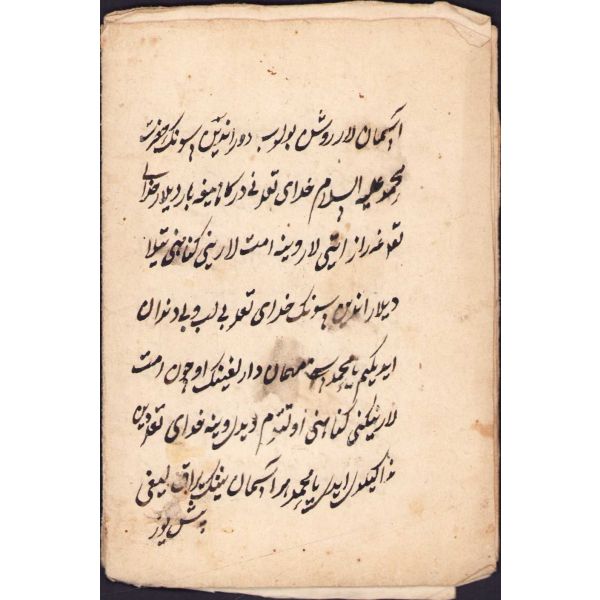 آسمان لار روشن بولوب دورانیدین سونک حضرت
محمد علیه السلام خدای تعالی نی درکاهیغه باردیلار خدای
تعالی غه راز ایتی لار وینه امت لارینی کناهنی تیلا
دیلار اندین سونک خدای تعالی بی لب و بی دندان
ایدیکیم یا محمد مهمان دارلیغینک اوچون امت
لارینکنی کناهنی اوتتم دیدی وینه خدای تعالی دین
ندا کیلدی ایدی یا محمد هر آسمان نینک براق لیغی
بش یوز